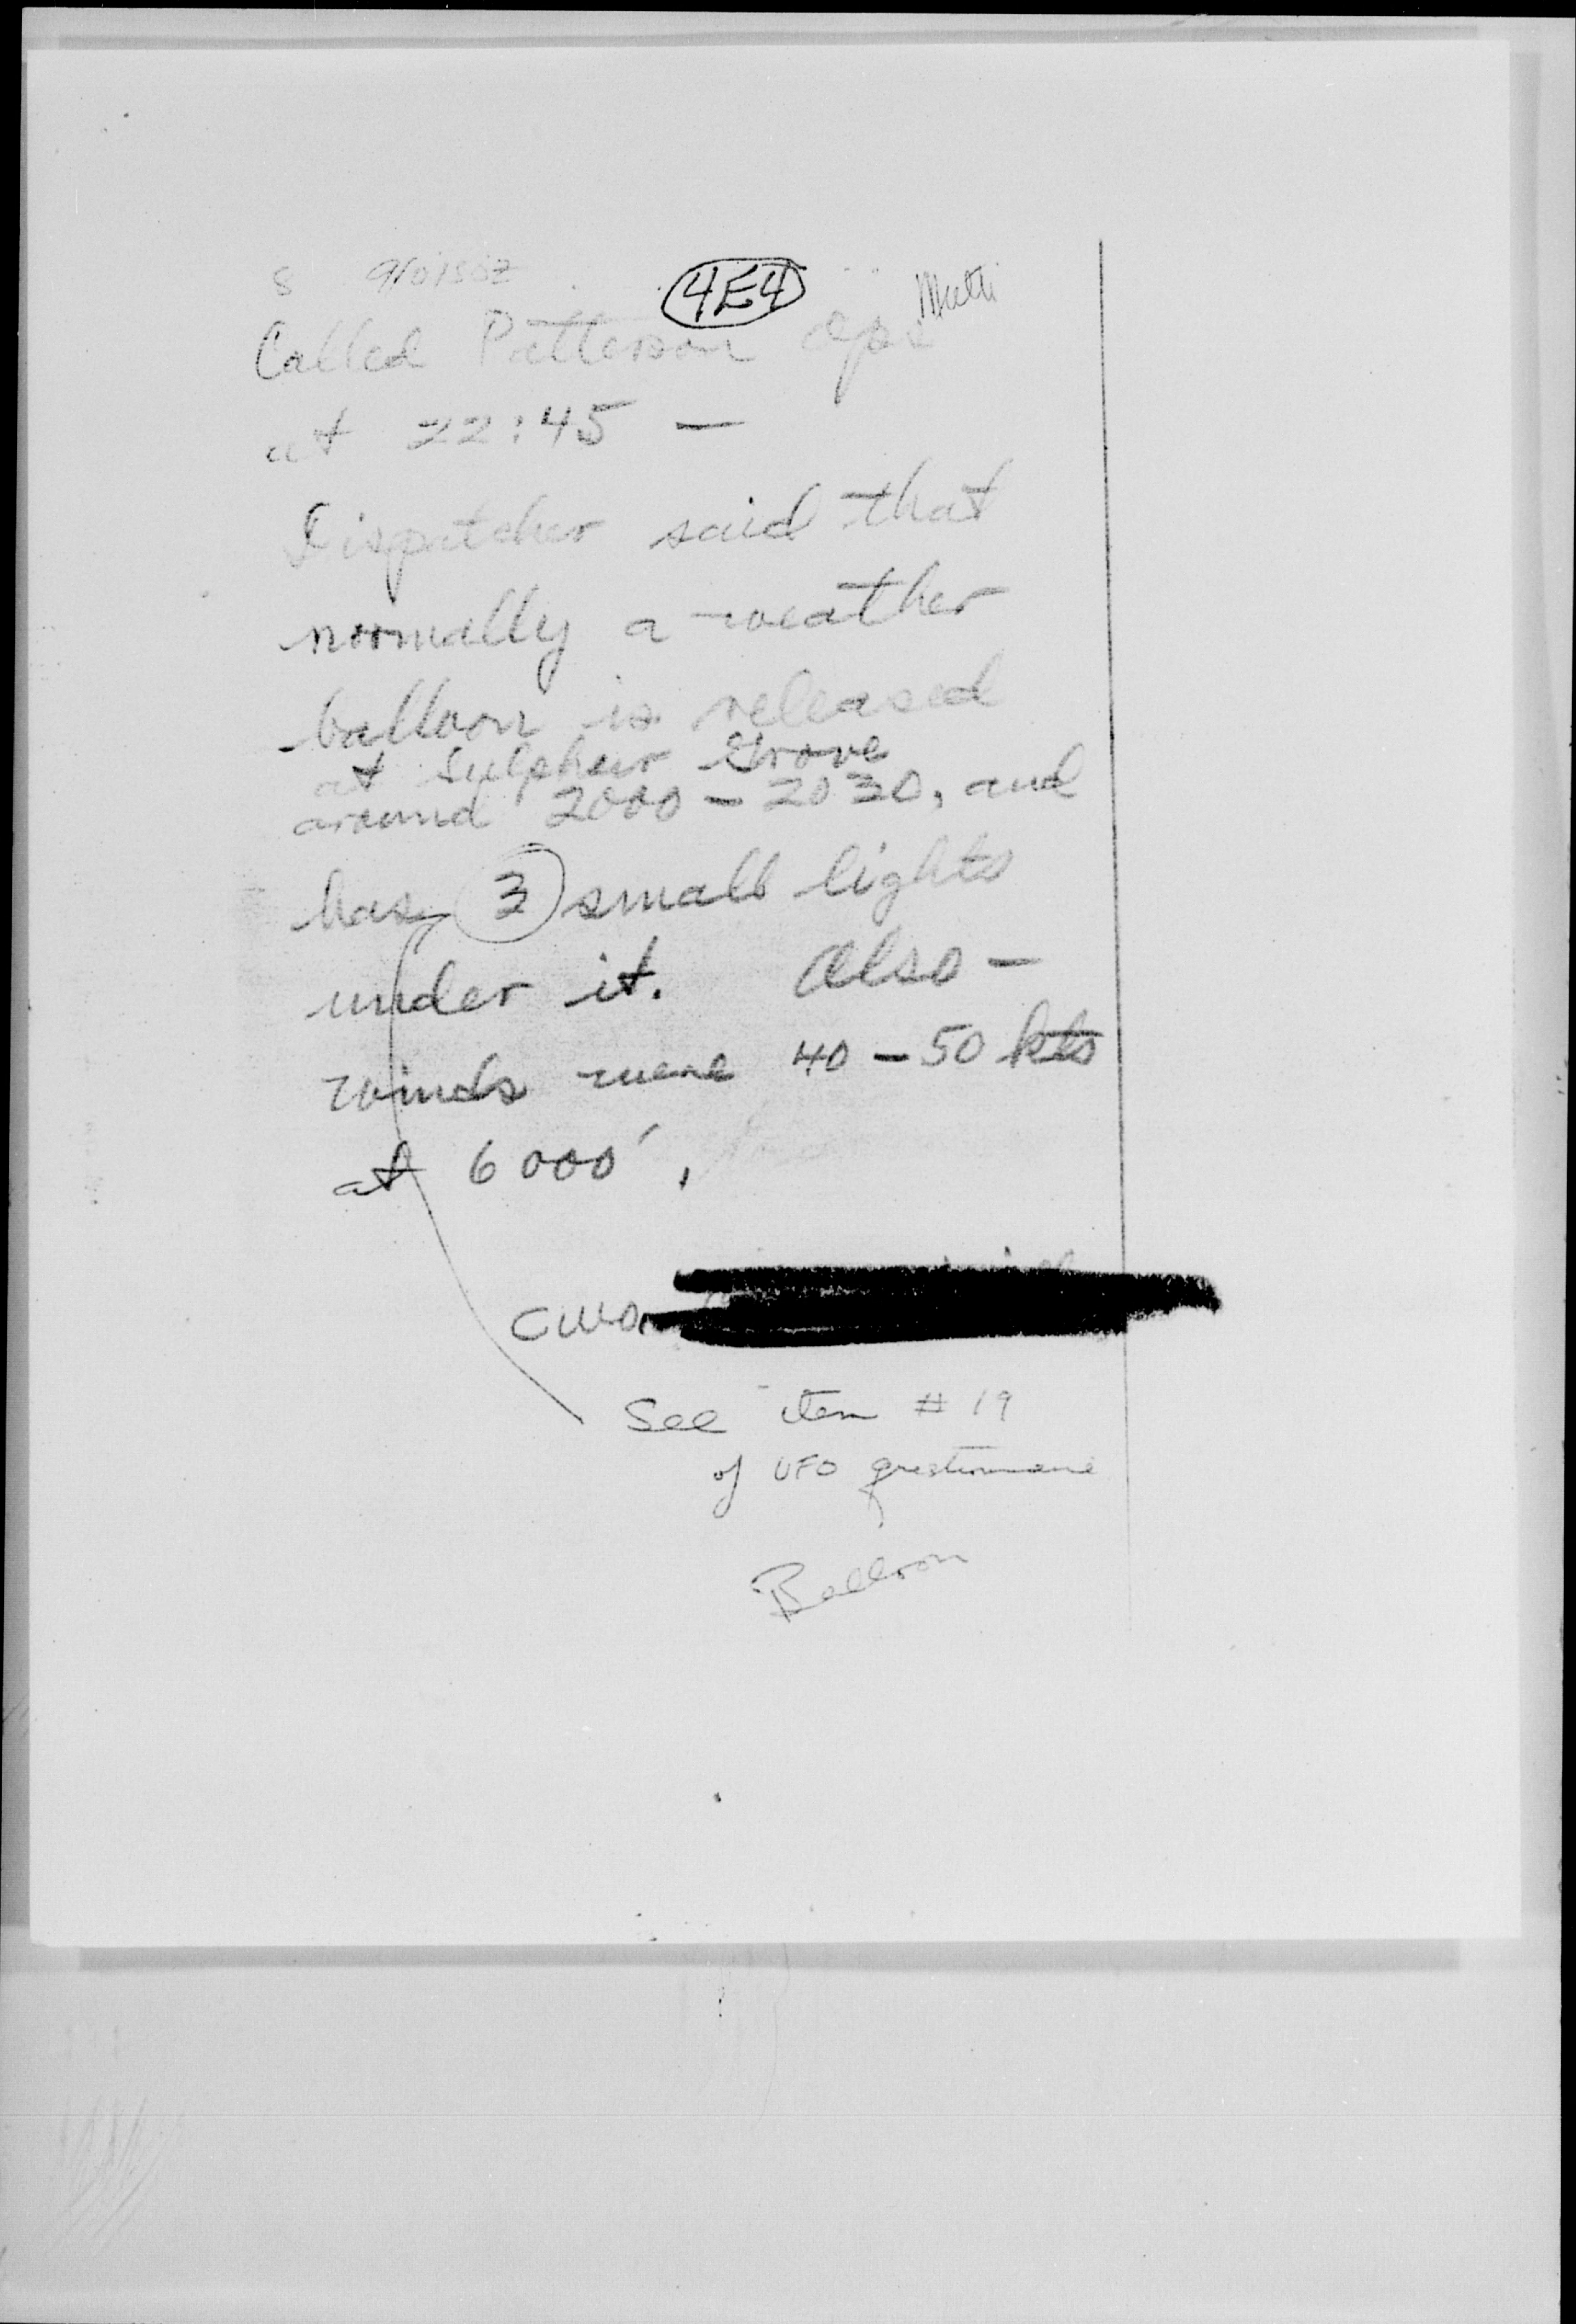 8 9/0150Z
4E4
Called Patterson Ops
at 22:45 —
Dispatcher said that
normally a weather
balloon is released
at Sulphur Grove
around 2000 - 2030, and
has 3 small lights
under it. Also -
winds were 40 - 50 kts
at 6000'.
CWO
See item # 19
of UFO questionnaire
Balloon